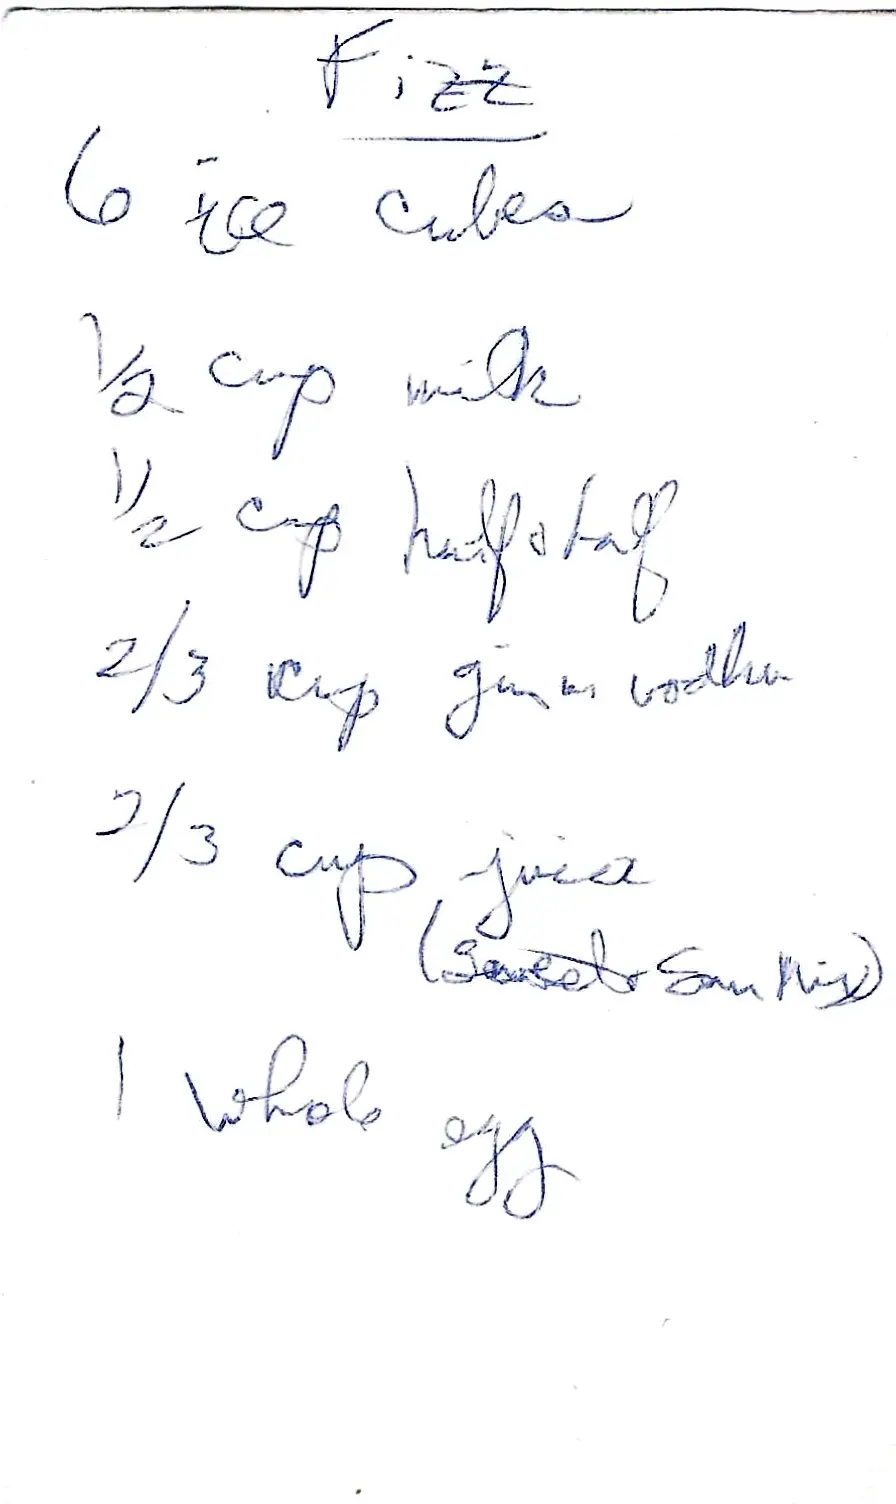 Fizz
6 ice cubes
1/2 cup milk
1/2 cup half & half
2/3 cup gin or vodka
2/3 cup juice
(Sweet & Sour Mix)
1 whole egg